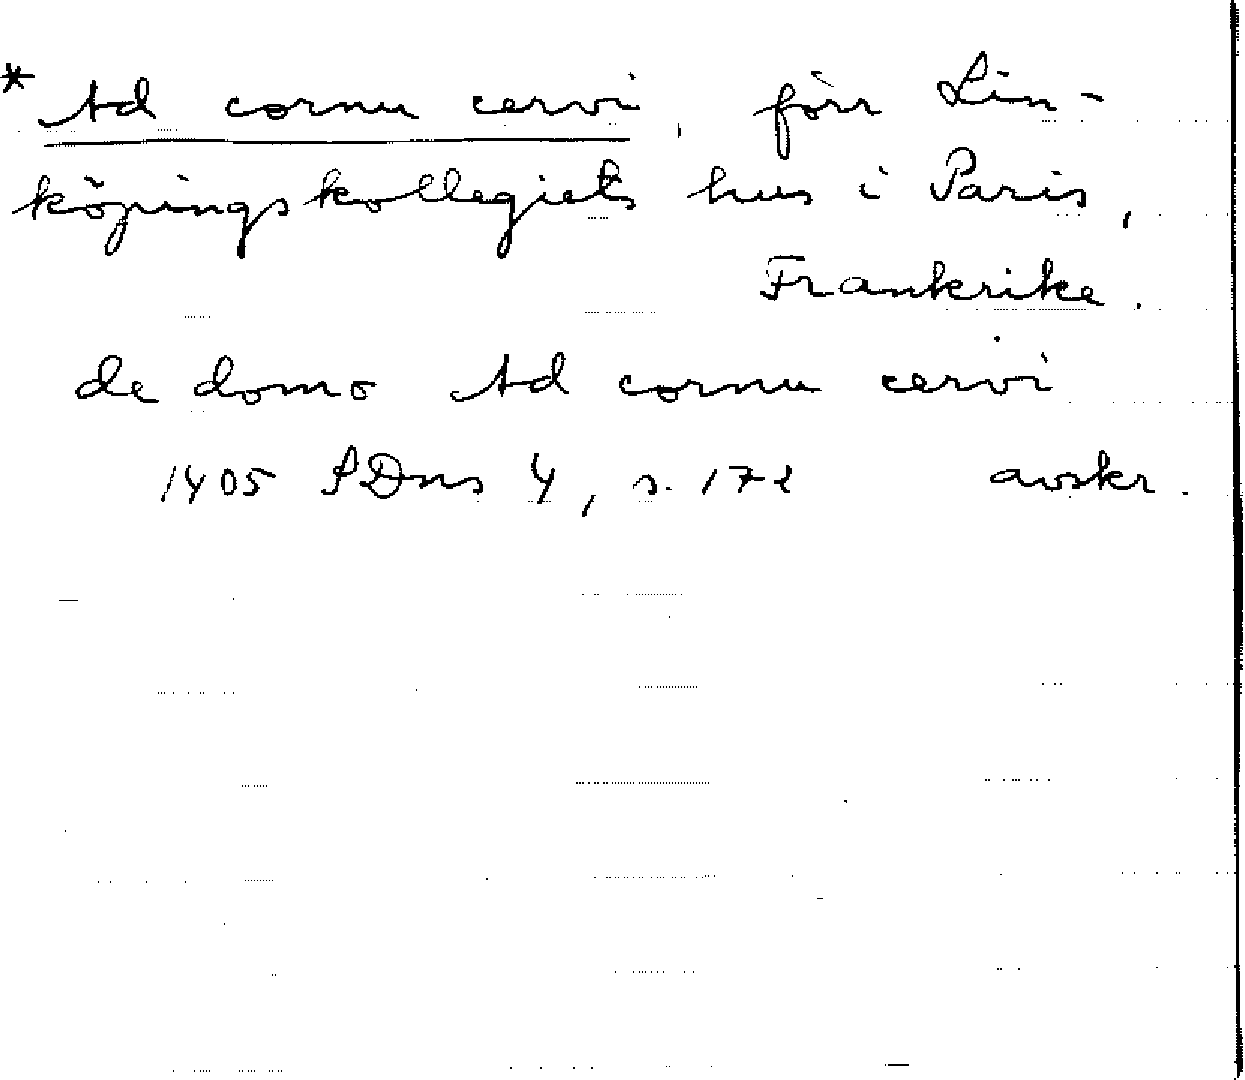 * Ad cornu cervi, förr Lin-
köpingskollegiets hus i Paris,
Frankrike.
de domo Ad cornu cervi
1405 SDns 4, s. 172 avskr.